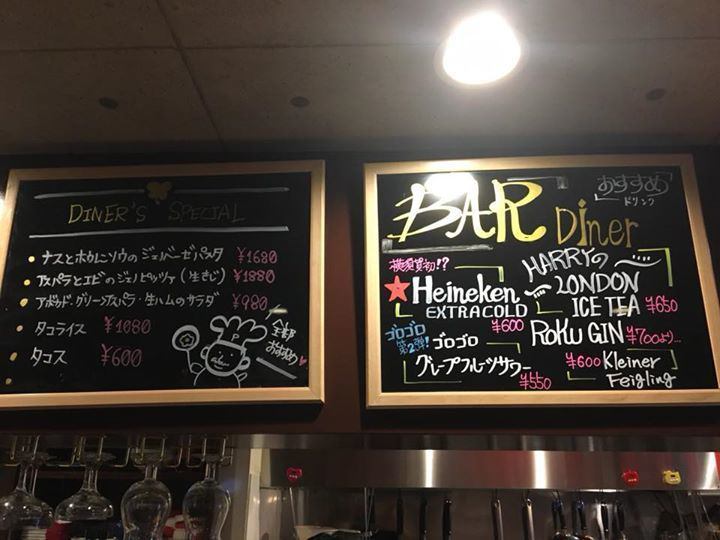 DINER'S SPECIAL
ナスとホウレンソウのジェノベーゼパスタ ¥1680
アスパラとエビのジェノピッツァ(生きじ) ¥1880
アボカド・グリーンアスパラ・生ハムのサラダ ¥980
タコライス ¥1080
タコス ¥600
全部
おすすめ
BAR Diner
おすすめ
ドリンク
横須賀初!?
Heineken
EXTRA COLD
¥600
HARRYの
LONDON
ICE TEA ¥650
ゴロゴロ
第2弾!
ゴロゴロ
グレープフルーツサワー
¥550
ROKU GIN ¥700より...
¥600 Kleiner
Feigling